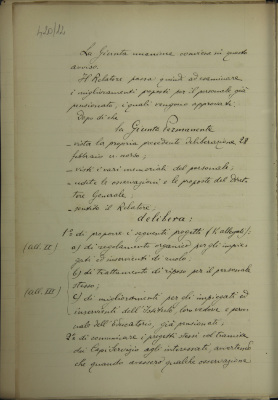 La Giunta unanime conviene in questo
avviso.
Il Relatore passa quindi ad esaminare
i miglioramenti proposti per il personale già
pensionato, i quali vengono approvati.
Dopo di che
la Giunta Permanente
- vista la propria precedente deliberazione 28
febbraio u. scorso;
- visti i vari memoriali del personale;
- udite le osservazioni e le proposte del Diret
tore Generale;
- sentito il Relatore;
delibera:
1° di proporre i seguenti progetti (3 allegati):
(all. II) a) di regolamento organico per gli impie
gati ed inservienti di ruolo;
b) di trattamento di riposo per il personale
stesso;
(all. III) c) di miglioramento per gli impiegati ed
inservienti dell'Istituto, loro vedove e perso
nale dell'Educatorio, già pensionati;
2° di comunicare i progetti stessi col tramite
dei Capi Servizio agli interessati, avvertendo
che quando avessero qualche osservazione